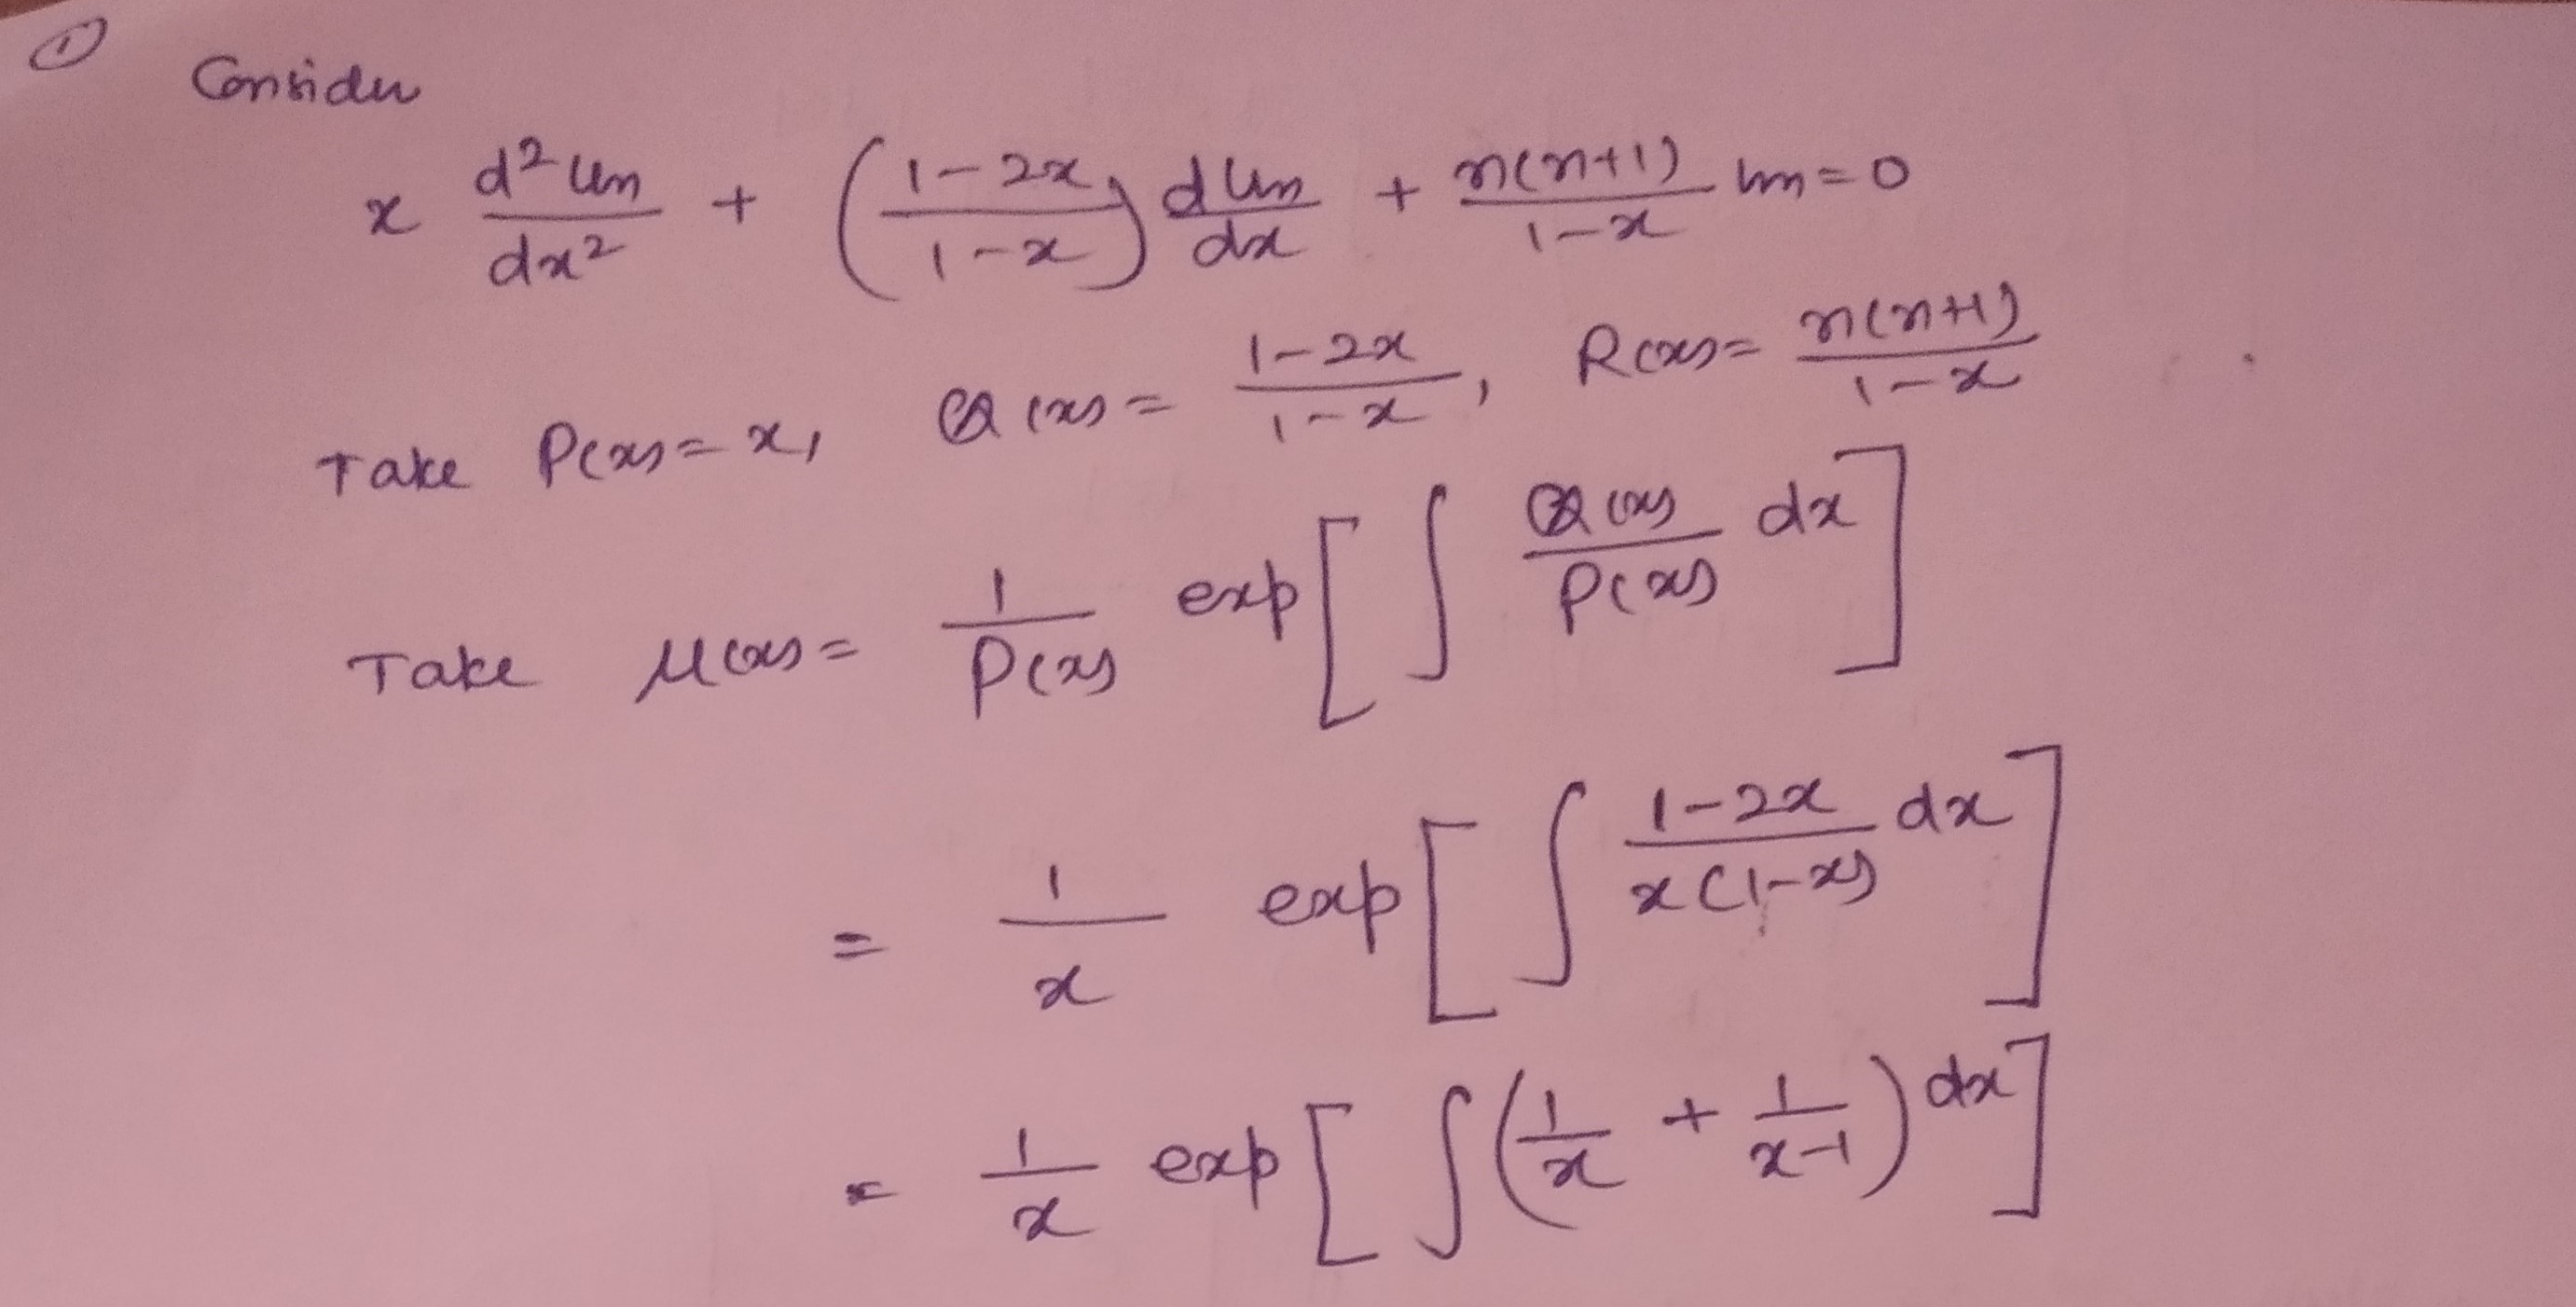 ①
Consider
x d²un/dx² + ((1-2x)/(1-x)) dun/dx + n(n+1)/(1-x) un = 0
Take P(x) = x, Q(x) = (1-2x)/(1-x), R(x) = n(n+1)/(1-x)
Take μ(x) = 1/P(x) exp[∫ Q(x)/P(x) dx]
= 1/x exp[∫ (1-2x)/(x(1-x)) dx]
= 1/x exp[∫(1/x + 1/(x-1)) dx]